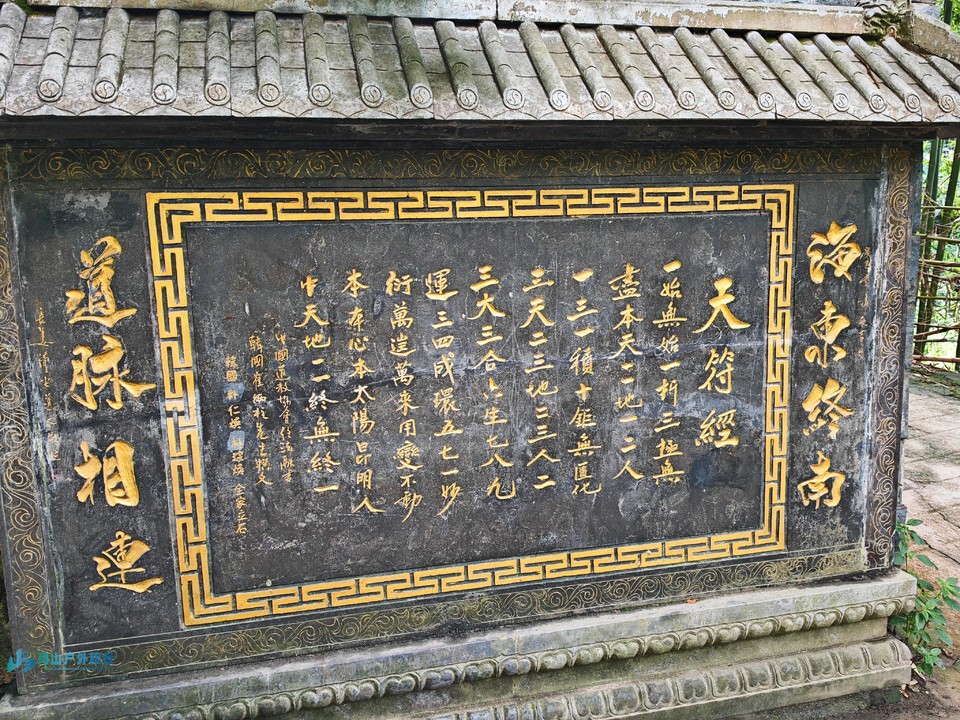 海東終南
天符經
一始無始一析三極無
盡本天一一地一二人
一三一積十鉅無匱化
三天二三地二三人二
三大三合六生七八九
運三四成環五七一妙
衍萬往萬來用變不動
本本心本太陽昂明人
中天地一一終無終一
中國道教協會任法融書
韓國崔
韓國 朴仁 全家立石
道脉相連